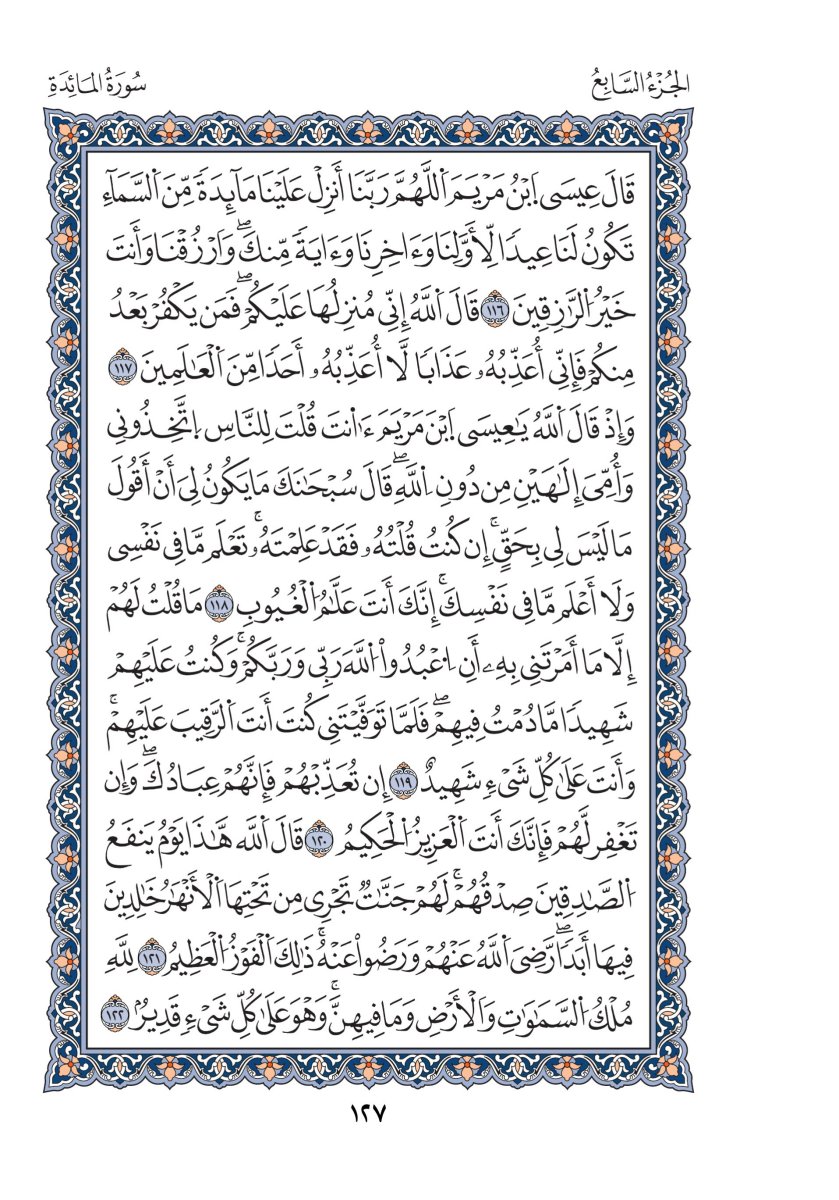 الجُزْءُ السَّابِعُ
سُورَةُ المَائِدَةِ
قَالَ عِيسَى اَبْنُ مَرْيَمَ اَللَّهُمَّ رَبَّنَا أَنزِلْ عَلَيْنَا مَآئِدَةً مِّنَ اَلسَّمَآءِ
تَكُونُ لَنَا عِيدًا لِّأَوَّلِنَا وَءَاخِرِنَا وَءَايَةً مِّنكَۖ وَاَرْزُقْنَا وَأَنتَ
خَيْرُ اُلرَّٰزِقِينَ ١١٦ قَالَ اَللَّهُ إِنِّي مُنزِلُهَا عَلَيْكُمْۖ فَمَن يَكْفُرْ بَعْدُ
مِنكُمْ فَإِنِّي أُعَذِّبُهُۥ عَذَابًا لَّا أُعَذِّبُهُۥ أَحَدًا مِّنَ اَلْعَٰلَمِينَ ١١٧
وَإِذْ قَالَ اَللَّهُ يَٰعِيسَى اَبْنَ مَرْيَمَ ءَاٰنتَ قُلْتَ لِلنَّاسِ اِتَّخِذُونِي
وَأُمِّيَ إِلَٰهَيْنِ مِن دُونِ اِللَّهِۖ قَالَ سُبْحَٰنَكَ مَا يَكُونُ لِيَ أَنْ أَقُولَ
مَا لَيْسَ لِي بِحَقٍّۚ إِن كُنتُ قُلْتُهُۥ فَقَدْ عَلِمْتَهُۥۚ تَعْلَم مَّا فِي نَفْسِي
وَلَا أَعْلَم مَّا فِي نَفْسِكَۚ إِنَّكَ أَنتَ عَلَّٰمُ اُلْغُيُوبِ ١١٨ مَا قُلْتُ لَهُمْ
إِلَّا مَا أَمَرْتَنِي بِهِۦ أَنِ اِعْبُدُواْ اُللَّهَ رَبِّي وَرَبَّكُمْۚ وَكُنتُ عَلَيْهِمْ
شَهِيدًا مَّا دُمْتُ فِيهِمْۖ فَلَمَّا تَوَفَّيْتَنِي كُنتَ أَنتَ اَلرَّقِيبَ عَلَيْهِمْۚ
وَأَنتَ عَلَىٰ كُلِّ شَيْءٍ شَهِيدٌ ١١٩ إِن تُعَذِّبْهُمْ فَإِنَّهُمْ عِبَادُكَۖ وَإِن
تَغْفِر لَّهُمْ فَإِنَّكَ أَنتَ اَلْعَزِيزُ اُلْحَكِيمُ ١٢٠ قَالَ اَللَّه هَّٰذَا يَوْمُ يَنفَعُ
اُلصَّٰدِقِينَ صِدْقُهُمْۚ لَهُمْ جَنَّٰتٌ تَجْرِي مِن تَحْتِهَا اَلْأَنْهَٰرُ خَٰلِدِينَ
فِيهَا أَبَدًاۖ رَّضِيَ اَللَّهُ عَنْهُمْ وَرَضُواْ عَنْهُۚ ذَٰلِكَ اَلْفَوْزُ اُلْعَظِيمُ ١٢١ لِلَّهِ
مُلْكُ اُلسَّمَٰوَٰتِ وَاَلْأَرْضِ وَمَا فِيهِنَّۚ وَهْوَ عَلَىٰ كُلِّ شَيْءٍ قَدِيرٌ ١٢٢
١٢٧